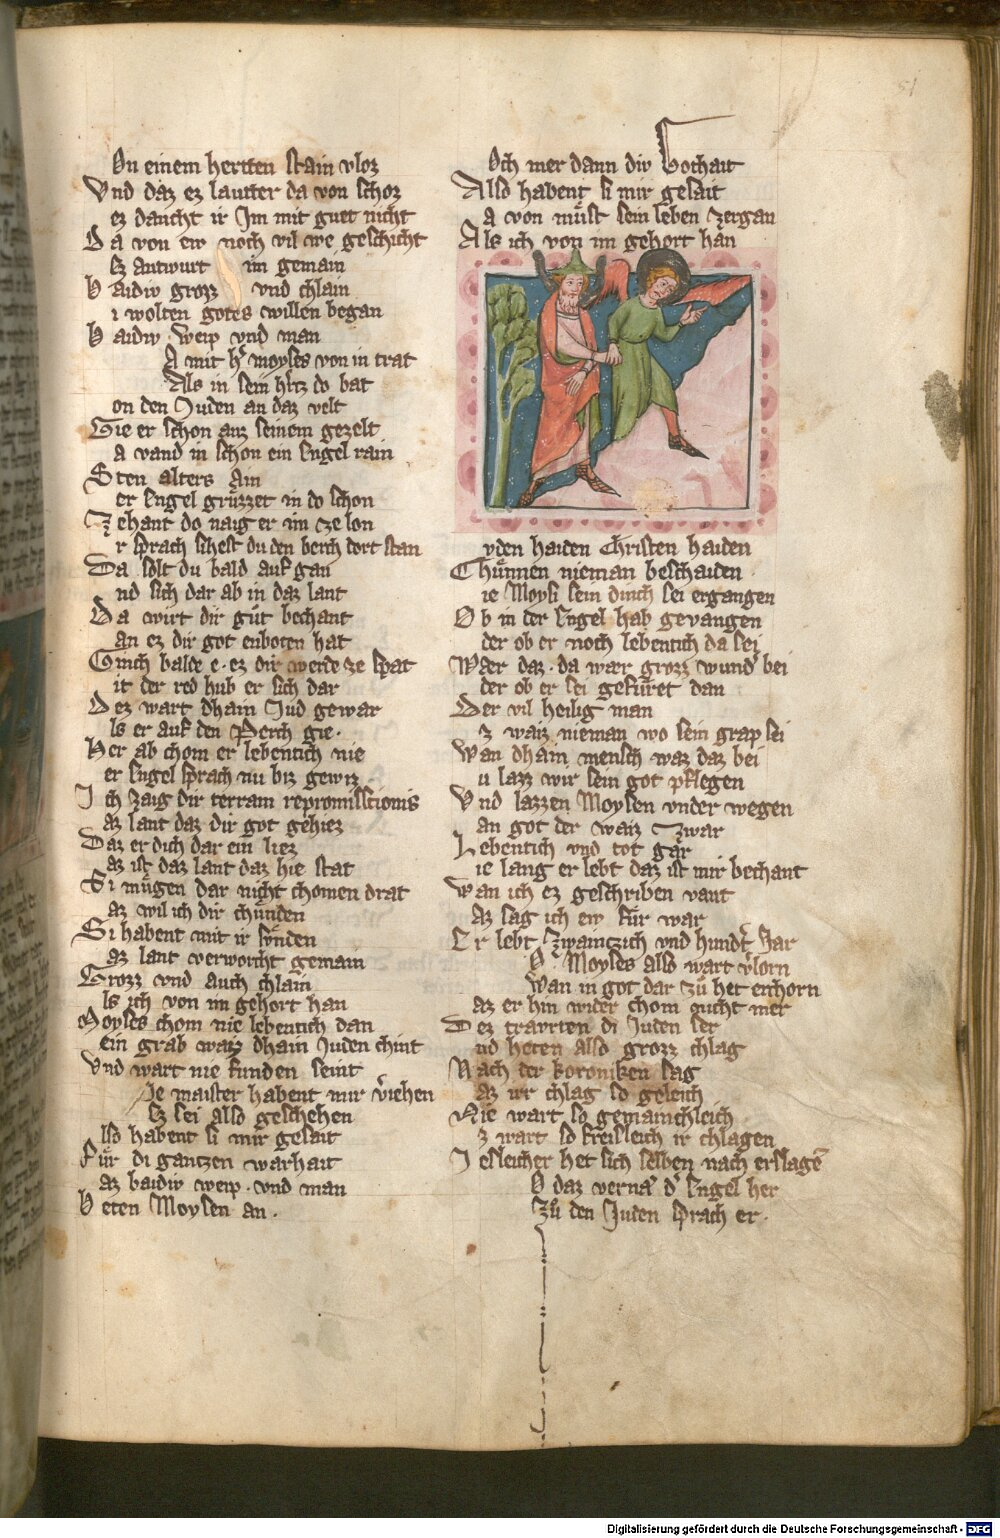 51
On einem hertten stain vloz
Vnd daz ez lautter da von schoz
ez daucht ir Im mit guet nicht
Da von ew noch vil we geschicht
Ez antwurt im gemain
Baidiv grozz vnd chlain
i wolten gotes willen began
Baidiv weip vnd man
A mit hͤr moyses von in trat
Als in sein hͤrtz do bat
on den Juden an daz velt
Gie er schon auz seinem gezelt
a vand in schon ein Engel rain
Sten alters ain
er Engel gruͤzzet in do schon
Zehant do naig er im ze lon
r sprach sihest du den berch dort stan
Da solt du bald auf gan
nd sich dar ab in daz lant
Da wirt dir guͤt bechant
an ez dir got enboten hat
Ginch balde e ez dir werde ze spat
it der red hub er sich dar
Dez wart dhain Jud gewar
ls er auf den Perch gie
Her ab chom er lebentich nie
er Engel sprach nu biz gewiz
Ich zaig dir terram repromisstionis
az lant daz dir got gehiez
Daz er dich dar ein liez
az ist daz lant daz hie stat
Si muͤgen dar nicht chomen drat
az wil ich dir chuͤnden
Si habent mit ir suͤnden
az lant verworcht gemain
Grozz vnd auch chlain
ls ich von im gehort han
Moyses chom nie lebentich dan
ein grab waz dhain Juden chint
Vnd wart nie funden seint
Je maister habent mir v̓iehen
Ez sei also geschehen
lso habent si mir gesait
Fuͤr di gantzen warhait
az baidiv weip vnd man
Beten Moysen an
Och mer dann div bochait
Also habent si mir gesait
a von muͤst sein leben zergan
Als ich von im gehort han
vden haiden Christen haiden
Chuͤnnen nieman beschaiden
ie Moysi sein dinch sei ergangen
Ob in der Engel hab gevangen
der ob er noch lebentich da sei
Waer daz da waer grozz wund̓ bei
der ob er sei gefuͤret dan
Der vil heilig man
z waiz nieman wo sein grap sei
Wan dhain mensch waz daz bei
u lazz wir sein got pflegen
Vnd lazzen Moysen vnder wegen
an got der waiz zwar
Lebentich vnd tot gar
ie lang er lebt daz ist mir bechant
Wan ich ez geschriben vant
az sag ich ew fuͤr war
Er lebt zwainczich vnd hundt̓ Jar
D̓ Moyses also wart v̓lorn
Wan in got dar zu het erchorn
az er hin wider chom nicht mer
Dez travrten di Juden ser
nd heten also grozz chlag
Nach der koroniken sag
az irr chlag so geleich
Nie wart so gemainchleich
z wart so freisleich ir chlagen
Jesleicher het sich selben nach erslagē
D daz verna̅ d̓ Engel her
Zu den Juden sprach er
Digitalisierung gefördert durch die Deutsche Forschungsgemeinschaft - DFG